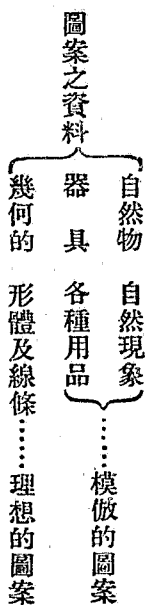 圖案之資料
自然物 自然現象
器具 各種用品
……模倣的圖案
幾何的 形體及線條……理想的圖案